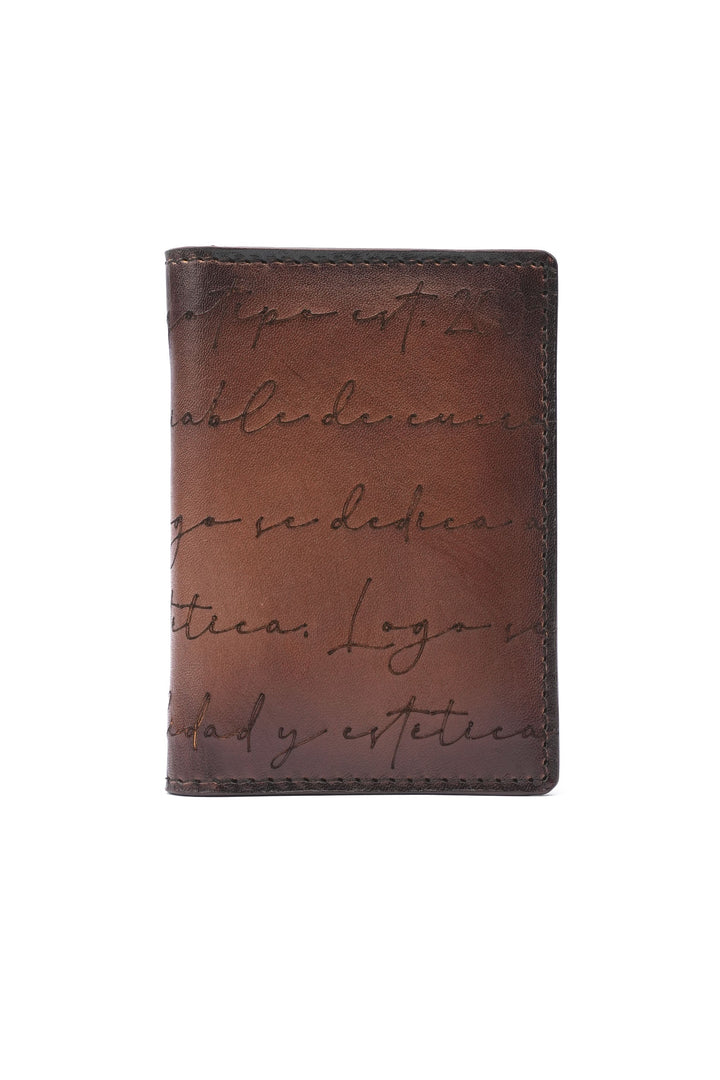 otipo est. 20
nable de cuero
go se dedica a
tética. Logo se
lidad y estética